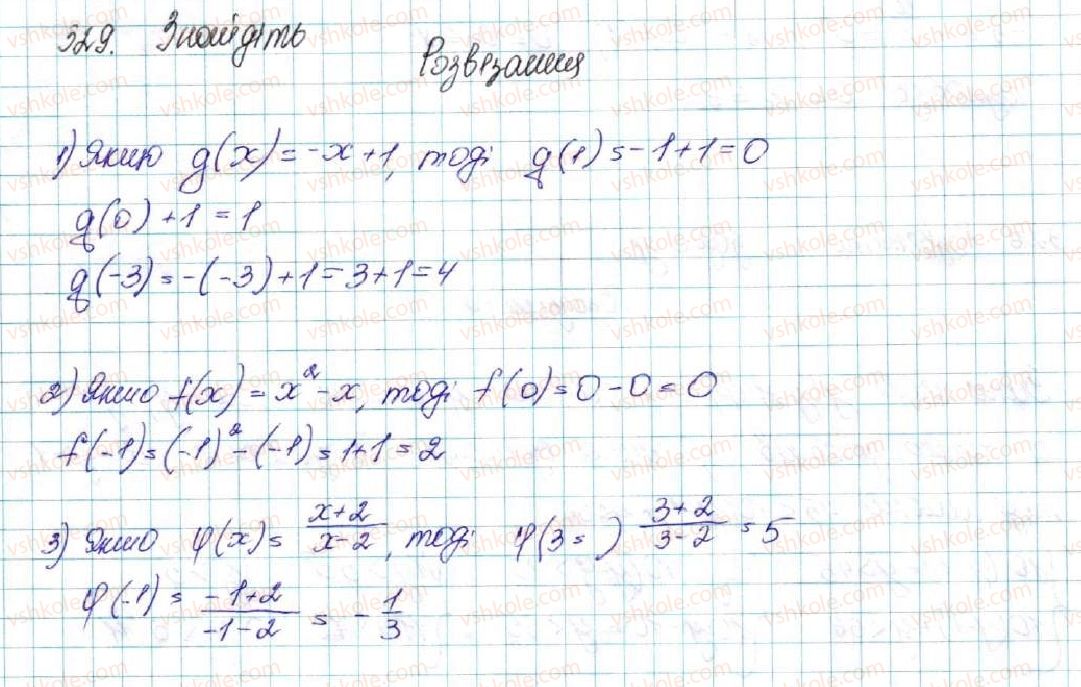 329. Знайдіть
Розвязання
1) Якщо g(x) = -x + 1, тоді g(1) = -1 + 1 = 0
g(0) + 1 = 1
g(-3) = -(-3) + 1 = 3 + 1 = 4
2) Якщо f(x) = x² - x, тоді f(0) = 0 - 0 = 0
f(-1) = (-1)² - (-1) = 1 + 1 = 2
3) Якщо φ(x) = (x+2)/(x-2), тоді φ(3 = ) (3+2)/(3-2) = 5
φ(-1) = (-1+2)/(-1-2) = -1/3